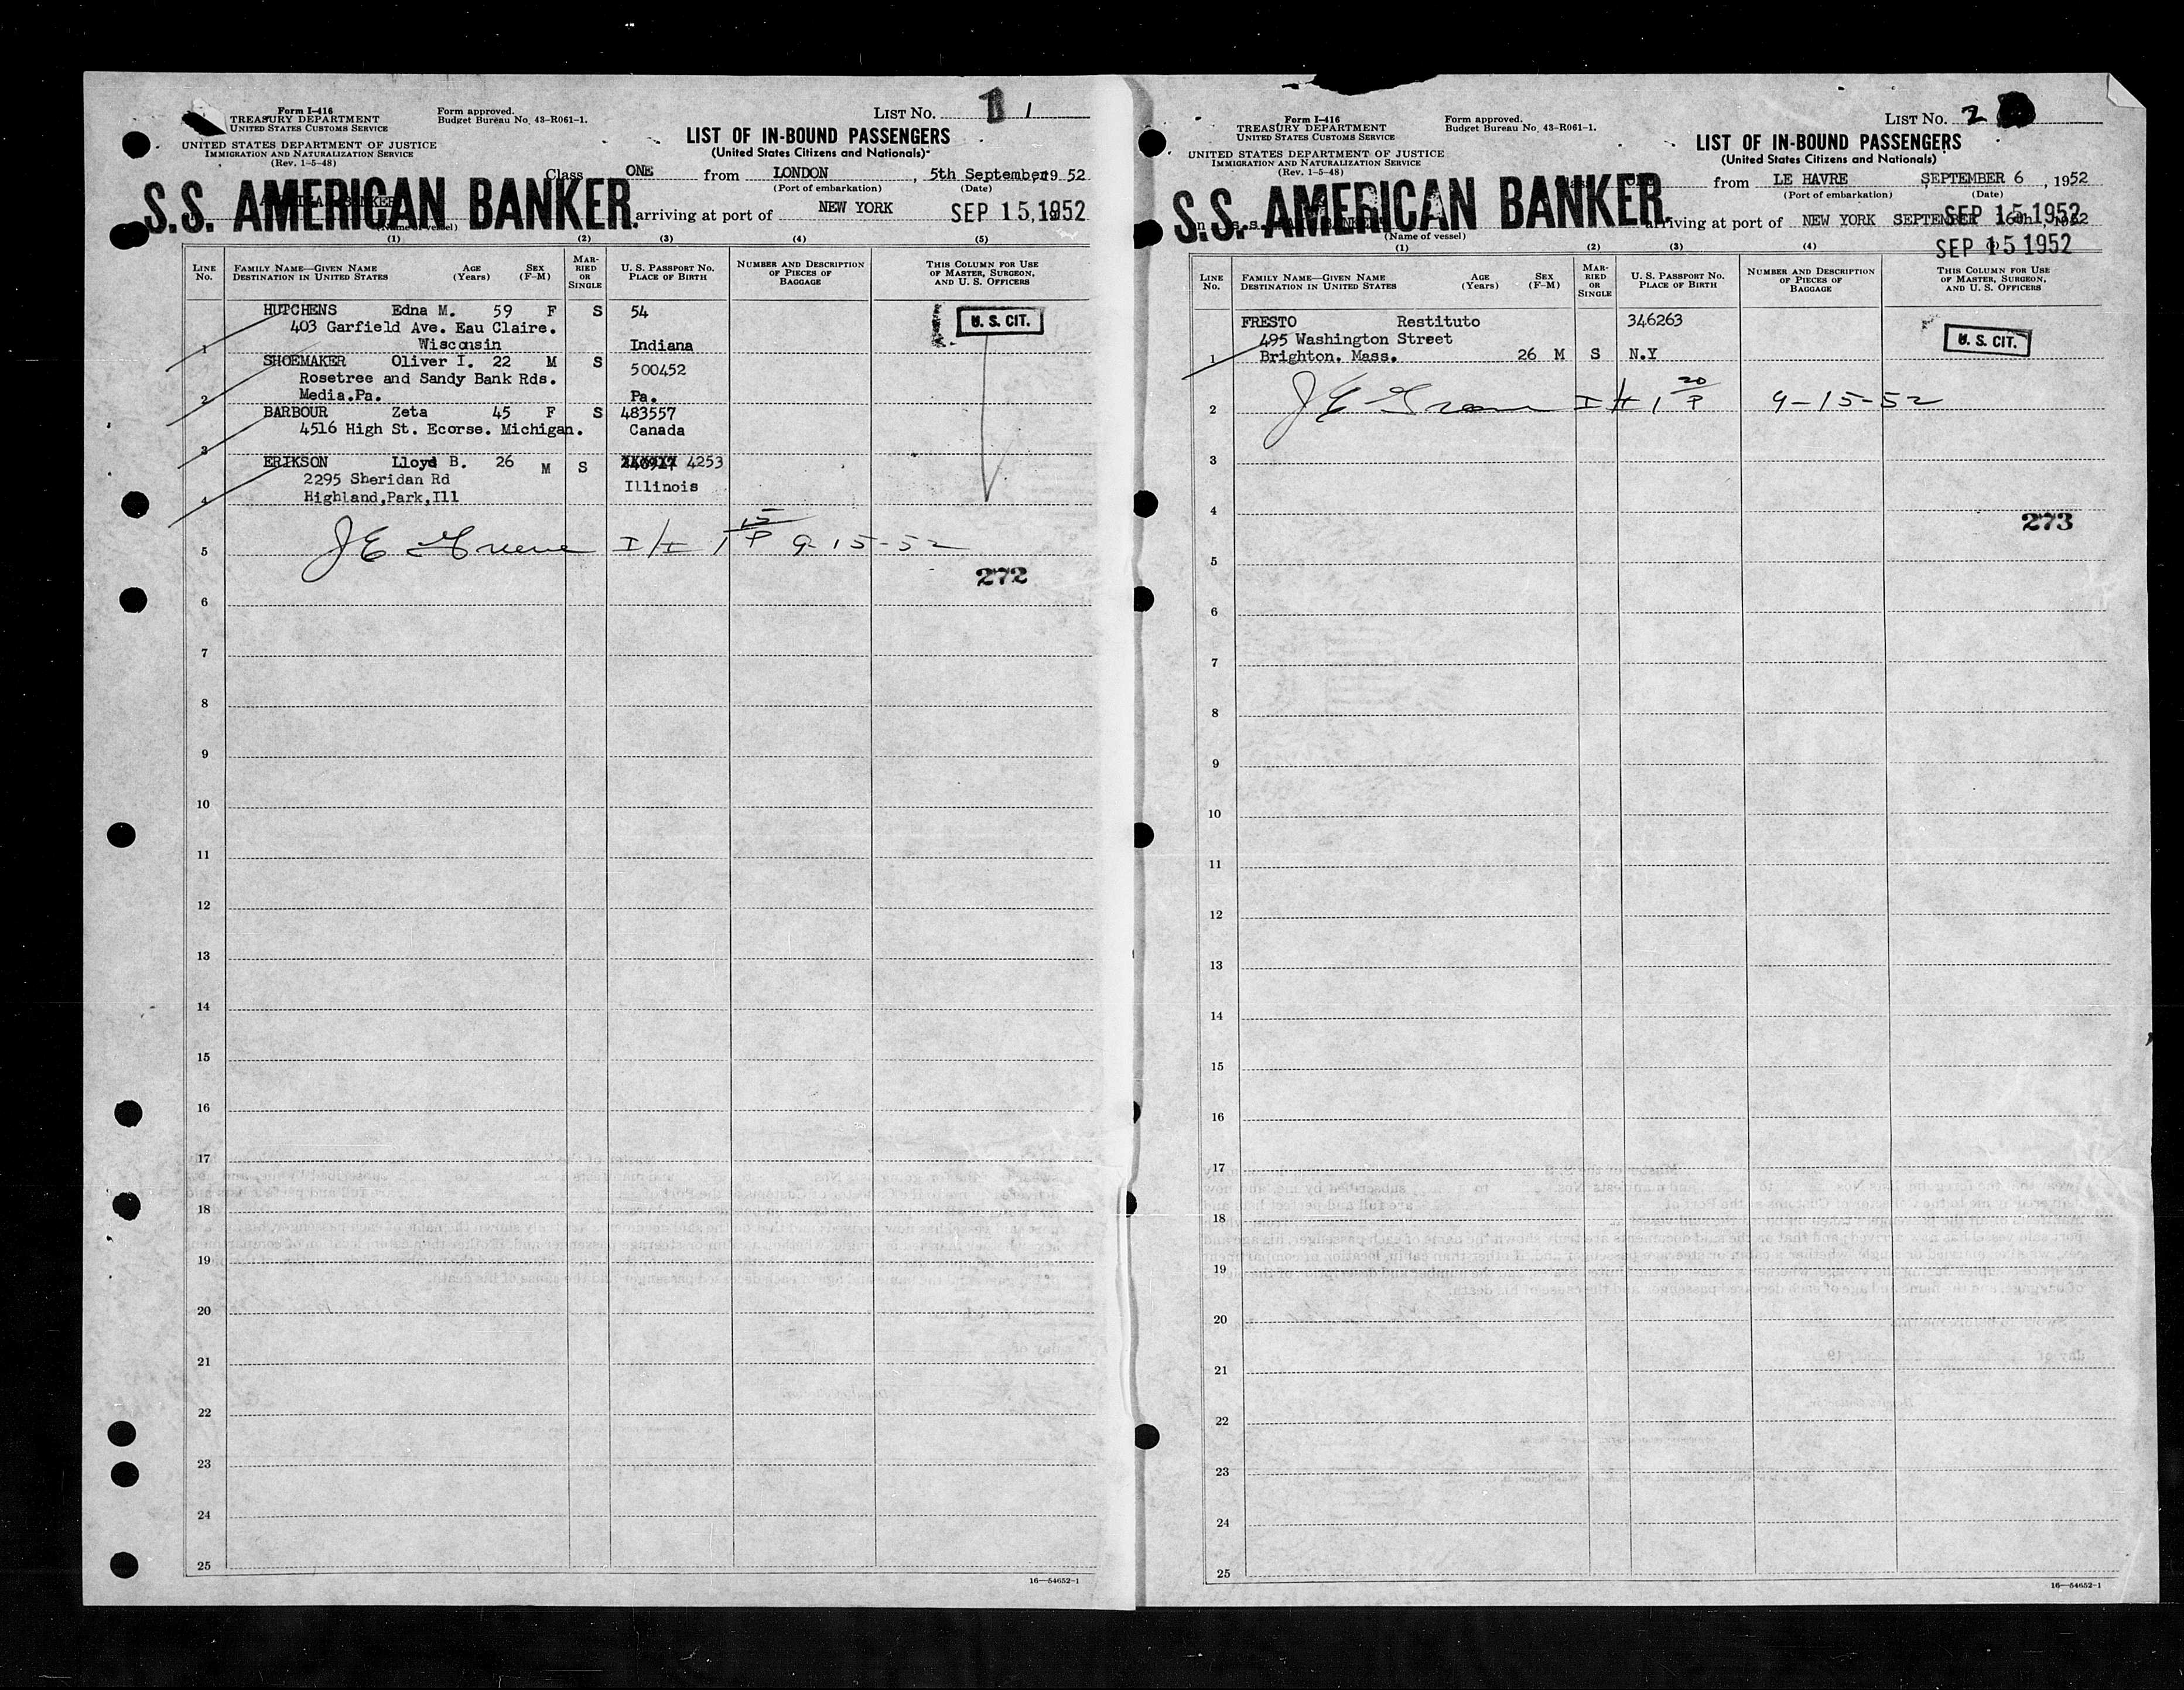 Form I-416
TREASURY DEPARTMENT
UNITED STATES CUSTOMS SERVICE
UNITED STATES DEPARTMENT OF JUSTICE
IMMIGRATION AND NATURALIZATION SERVICE
(Rev. 1-5-48)
Form approved.
Budget Bureau No. 43-R061-1.
LIST No. 1 1
LIST OF IN-BOUND PASSENGERS
(United States Citizens and Nationals)
Class ONE from LONDON, 5th September, 19 52
(Port of embarkation) (Date)
S.S. AMERICAN BANKER. arriving at port of NEW YORK SEP 15, 1952
(Name of vessel)
(1) (2) (3) (4) (5)
LINE No. FAMILY NAME—GIVEN NAME DESTINATION IN UNITED STATES AGE (Years) SEX (F-M) MARRIED OR SINGLE U. S. PASSPORT NO. PLACE OF BIRTH NUMBER AND DESCRIPTION OF PIECES OF BAGGAGE THIS COLUMN FOR USE OF MASTER, SURGEON, AND U. S. OFFICERS
HUTCHENS Edna M. 59 F S 54
403 Garfield Ave. Eau Claire. U. S. CIT.
1 Wisconsin Indiana
SHOEMAKER Oliver I. 22 M S 500452
Rosetree and Sandy Bank Rds.
2 Media.Pa. Pa.
BARBOUR Zeta 45 F S 483557
4516 High St. Ecorse. Michigan. Canada
3
ERIKSON Lloyd B. 26 M S 4253
2295 Sheridan Rd Illinois
4 Highland,Park,Ill
5 J E Greene I/I 1 15/P 9-15-52
272
6
7
8
9
10
11
12
13
14
15
16
17
18
19
20
21
22
23
24
25
16—54652-1
Form I-416
TREASURY DEPARTMENT
UNITED STATES CUSTOMS SERVICE
UNITED STATES DEPARTMENT OF JUSTICE
IMMIGRATION AND NATURALIZATION SERVICE
(Rev. 1-5-48)
Form approved.
Budget Bureau No. 43-R061-1.
LIST No. 2
LIST OF IN-BOUND PASSENGERS
(United States Citizens and Nationals)
from LE HAVRE SEPTEMBER 6, 1952
(Port of embarkation) (Date)
S.S. AMERICAN BANKER. arriving at port of NEW YORK SEPTEMBER 16th, 1952
SEP 15 1952
(Name of vessel)
SEP 15 1952
(1) (2) (3) (4)
LINE No. FAMILY NAME—GIVEN NAME DESTINATION IN UNITED STATES AGE (Years) SEX (F-M) MARRIED OR SINGLE U. S. PASSPORT NO. PLACE OF BIRTH NUMBER AND DESCRIPTION OF PIECES OF BAGGAGE THIS COLUMN FOR USE OF MASTER, SURGEON, AND U. S. OFFICERS
FRESTO Restituto 346263
495 Washington Street U. S. CIT.
1 Brighton. Mass. 26 M S N.Y
2 J E Greene I/I 1 20/P 9-15-52
3
4
273
5
6
7
8
9
10
11
12
13
14
15
16
17
18
19
20
21
22
23
24
25
16—54652-1